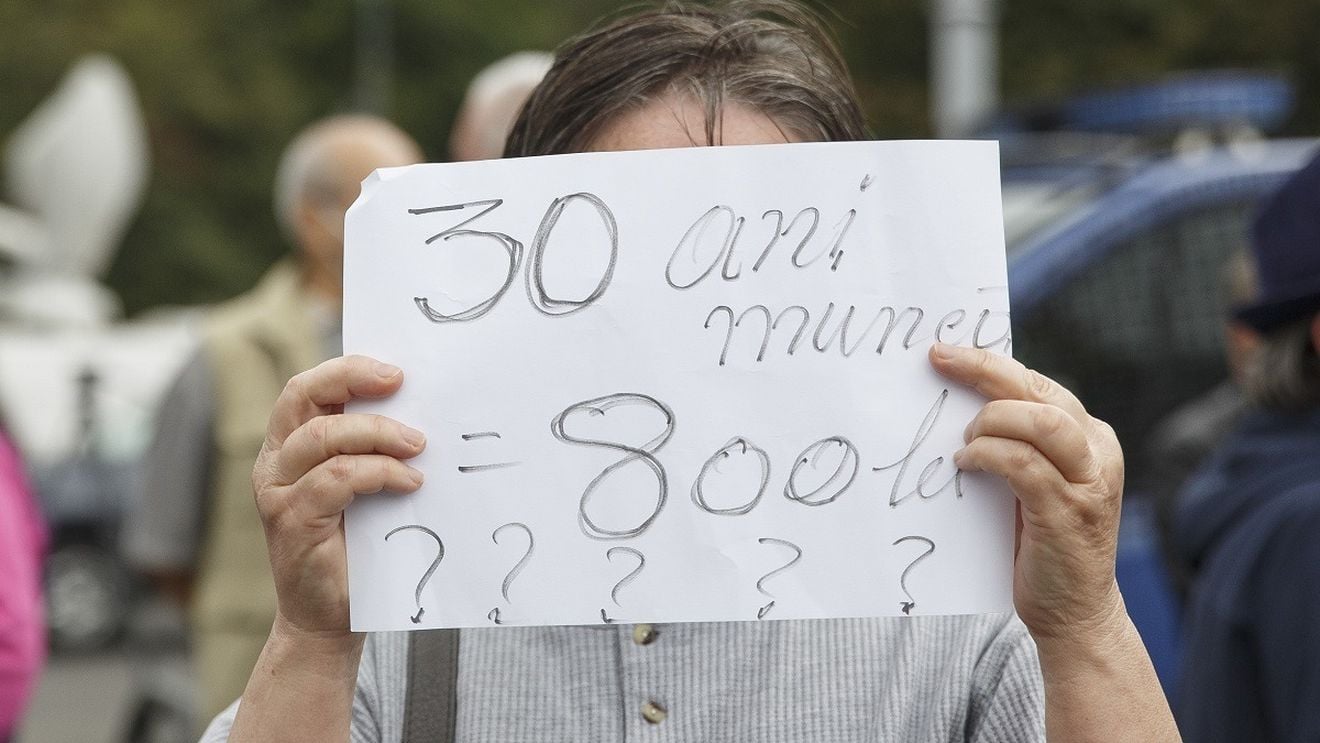 30 ani
muncă
= 800 lei
? ? ? ? ?